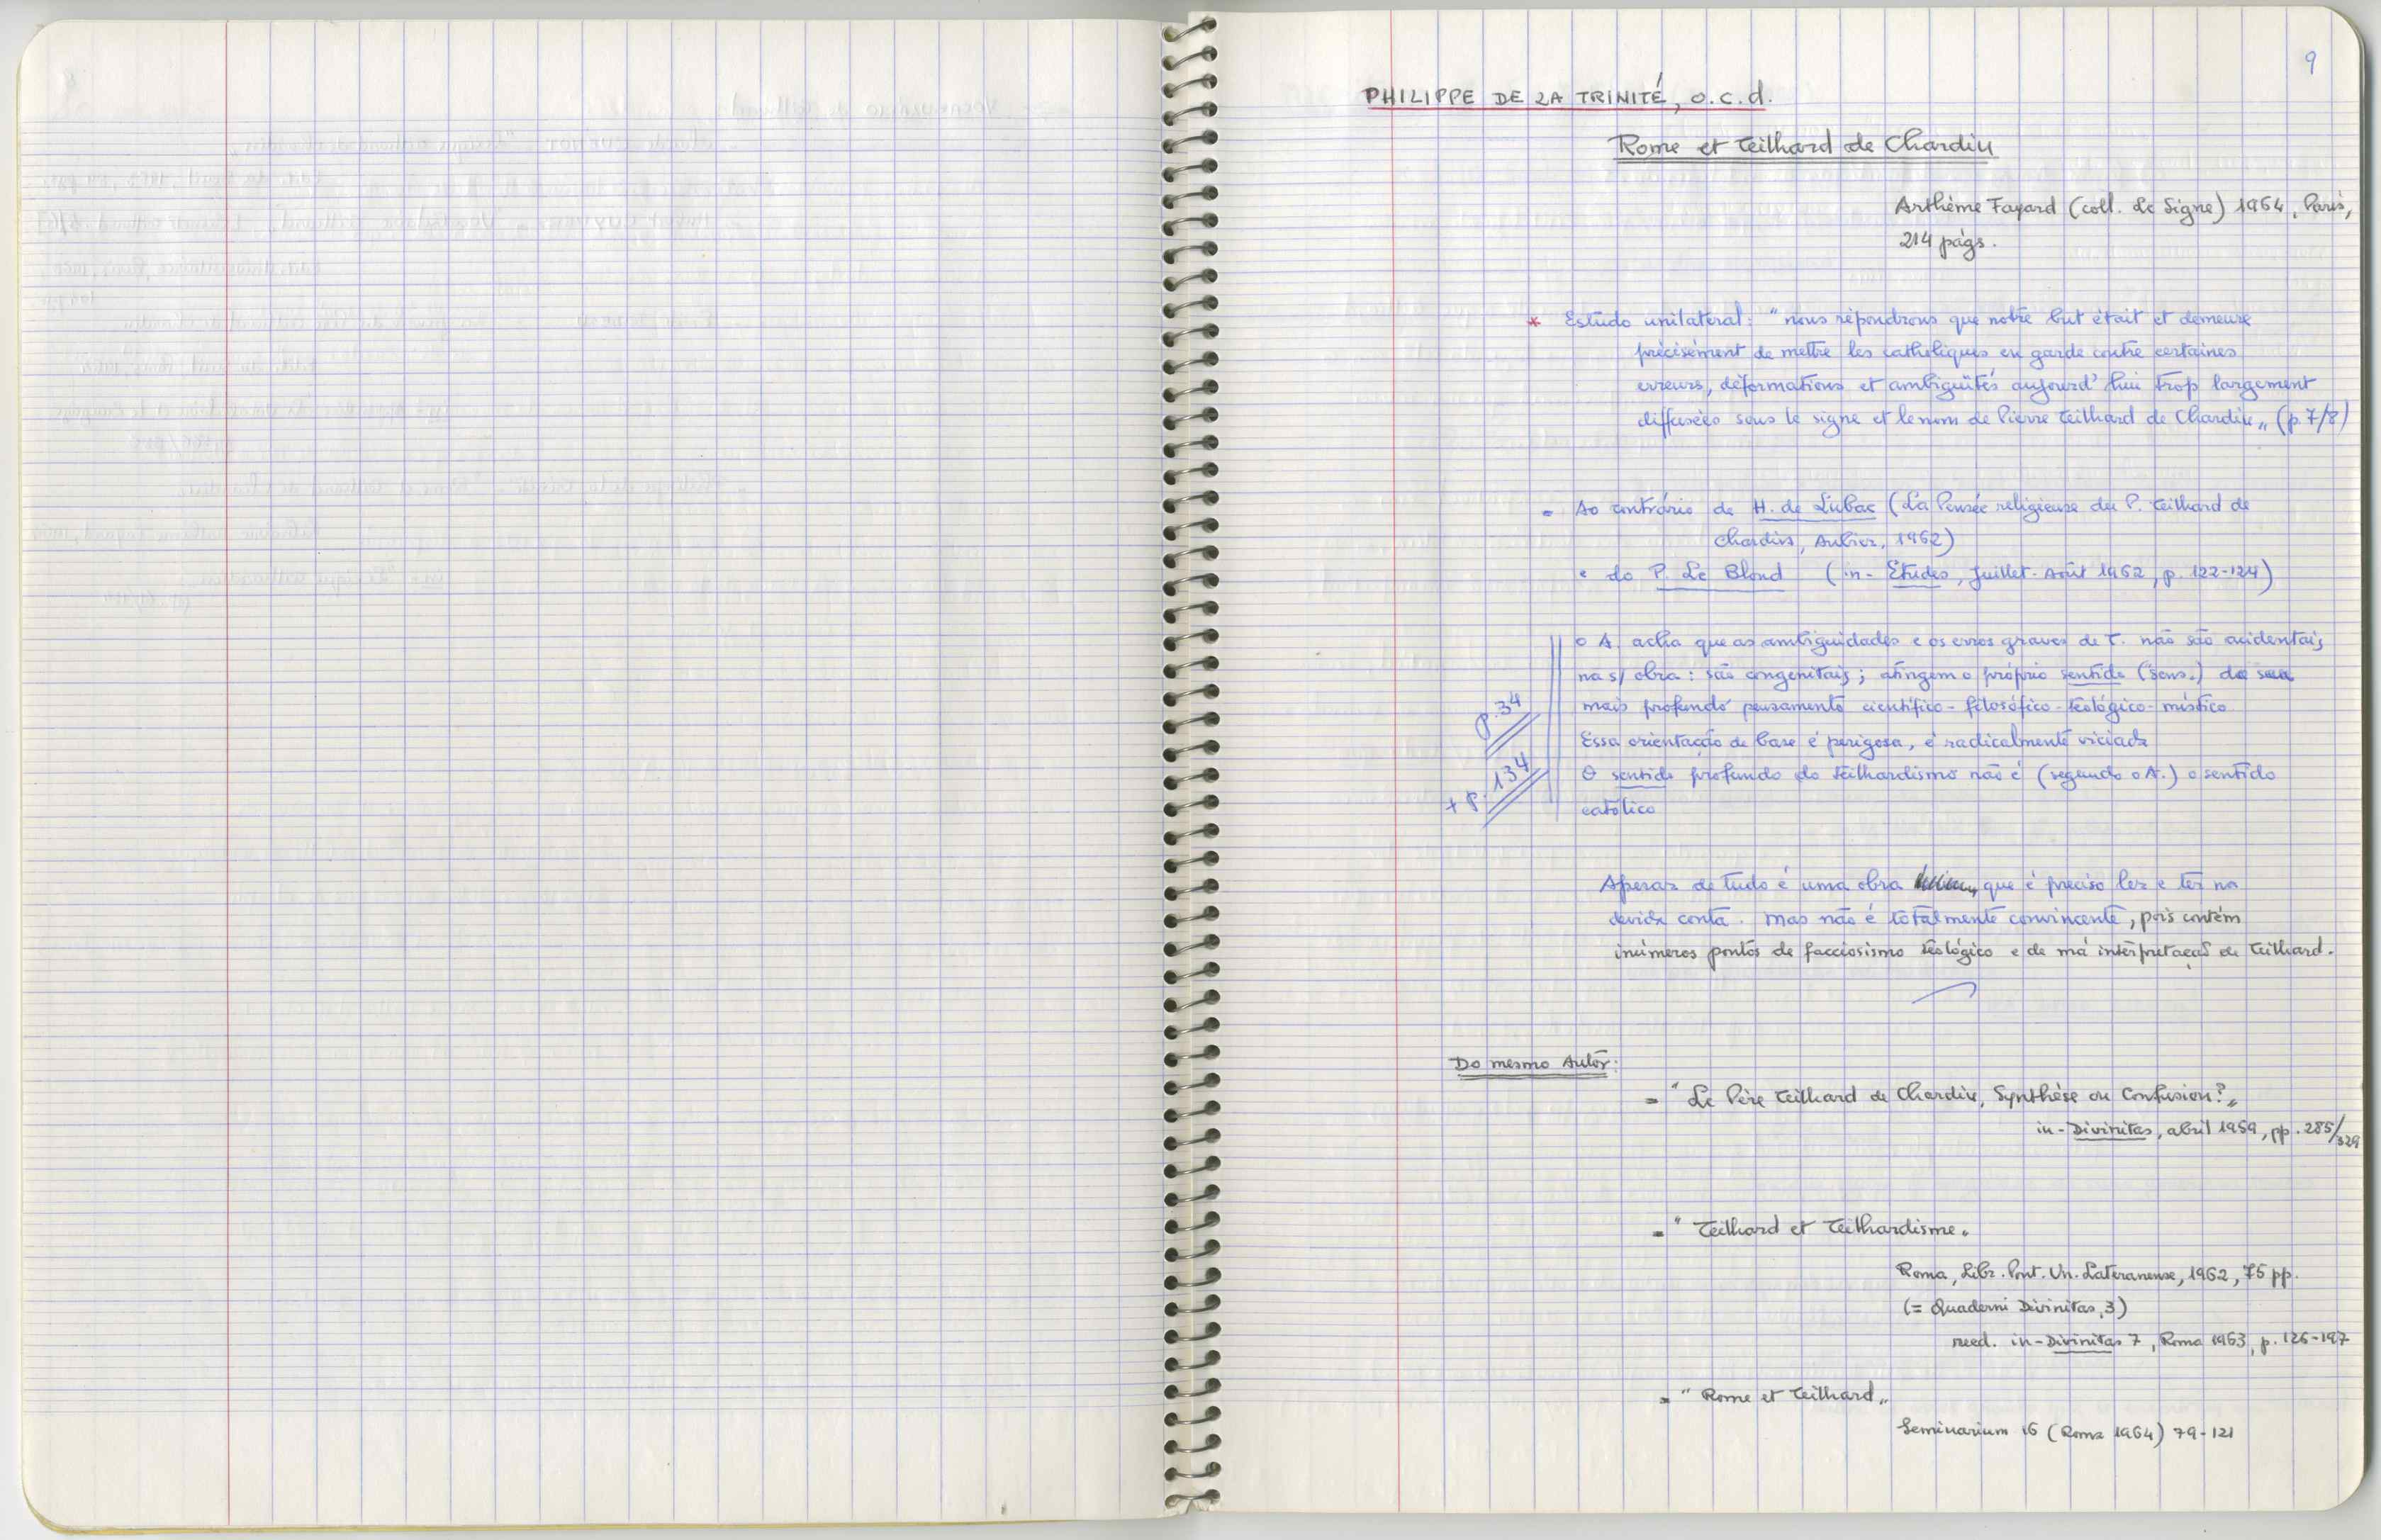 9
PHILIPPE DE LA TRINITÉ, o.c.d.
Rome et Teilhard de Chardin
Arthème Fayard (coll. Le Signe) 1964, Paris,
214 págs.
* Estudo unilateral: "nous répondrons que notre but était et demeure
précisément de mettre les catholiques en garde contre certaines
erreurs, déformations et ambiguïtés aujourd'hui trop largement
diffusées sous le signe et le nom de Pierre Teilhard de Chardin" (p. 7/8)
= Ao contrário de H. de Lubac (La Pensée religieuse du P. Teilhard de
Chardin, Aubier, 1962)
e do P. Le Blond (in- Études, Juillet-Août 1962, p. 122-124)
o A. acha que as ambiguidades e os erros graves de T. não são acidentais
na s/ obra: são congenitais; atingem o próprio sentido (sens.) do seu
mais profundo pensamento científico-filosófico-teológico-místico
Essa orientação de base é perigosa, é radicalmente viciada
O sentido profundo do teilhardismo não é (segundo o A.) o sentido
católico
p. 34
+ p. 134
Apesar de tudo é uma obra que é preciso ler e ter na
devida conta. Mas não é totalmente convincente, pois contém
inúmeros pontos de facciosismo teológico e de má interpretação de Teilhard.
Do mesmo Autor:
= "Le Père Teilhard de Chardin, Synthèse ou Confusion?"
in-Divinitas, abril 1959, pp. 285/329
= "Teilhard et Teilhardisme"
Roma, Libr. Pont. Un. Lateranense, 1962, 75 pp.
(= Quaderni Divinitas, 3)
reed. in-Divinitas 7, Roma 1963, p. 126-197
= "Rome et Teilhard"
Seminarium 16 (Roma 1964) 79-121